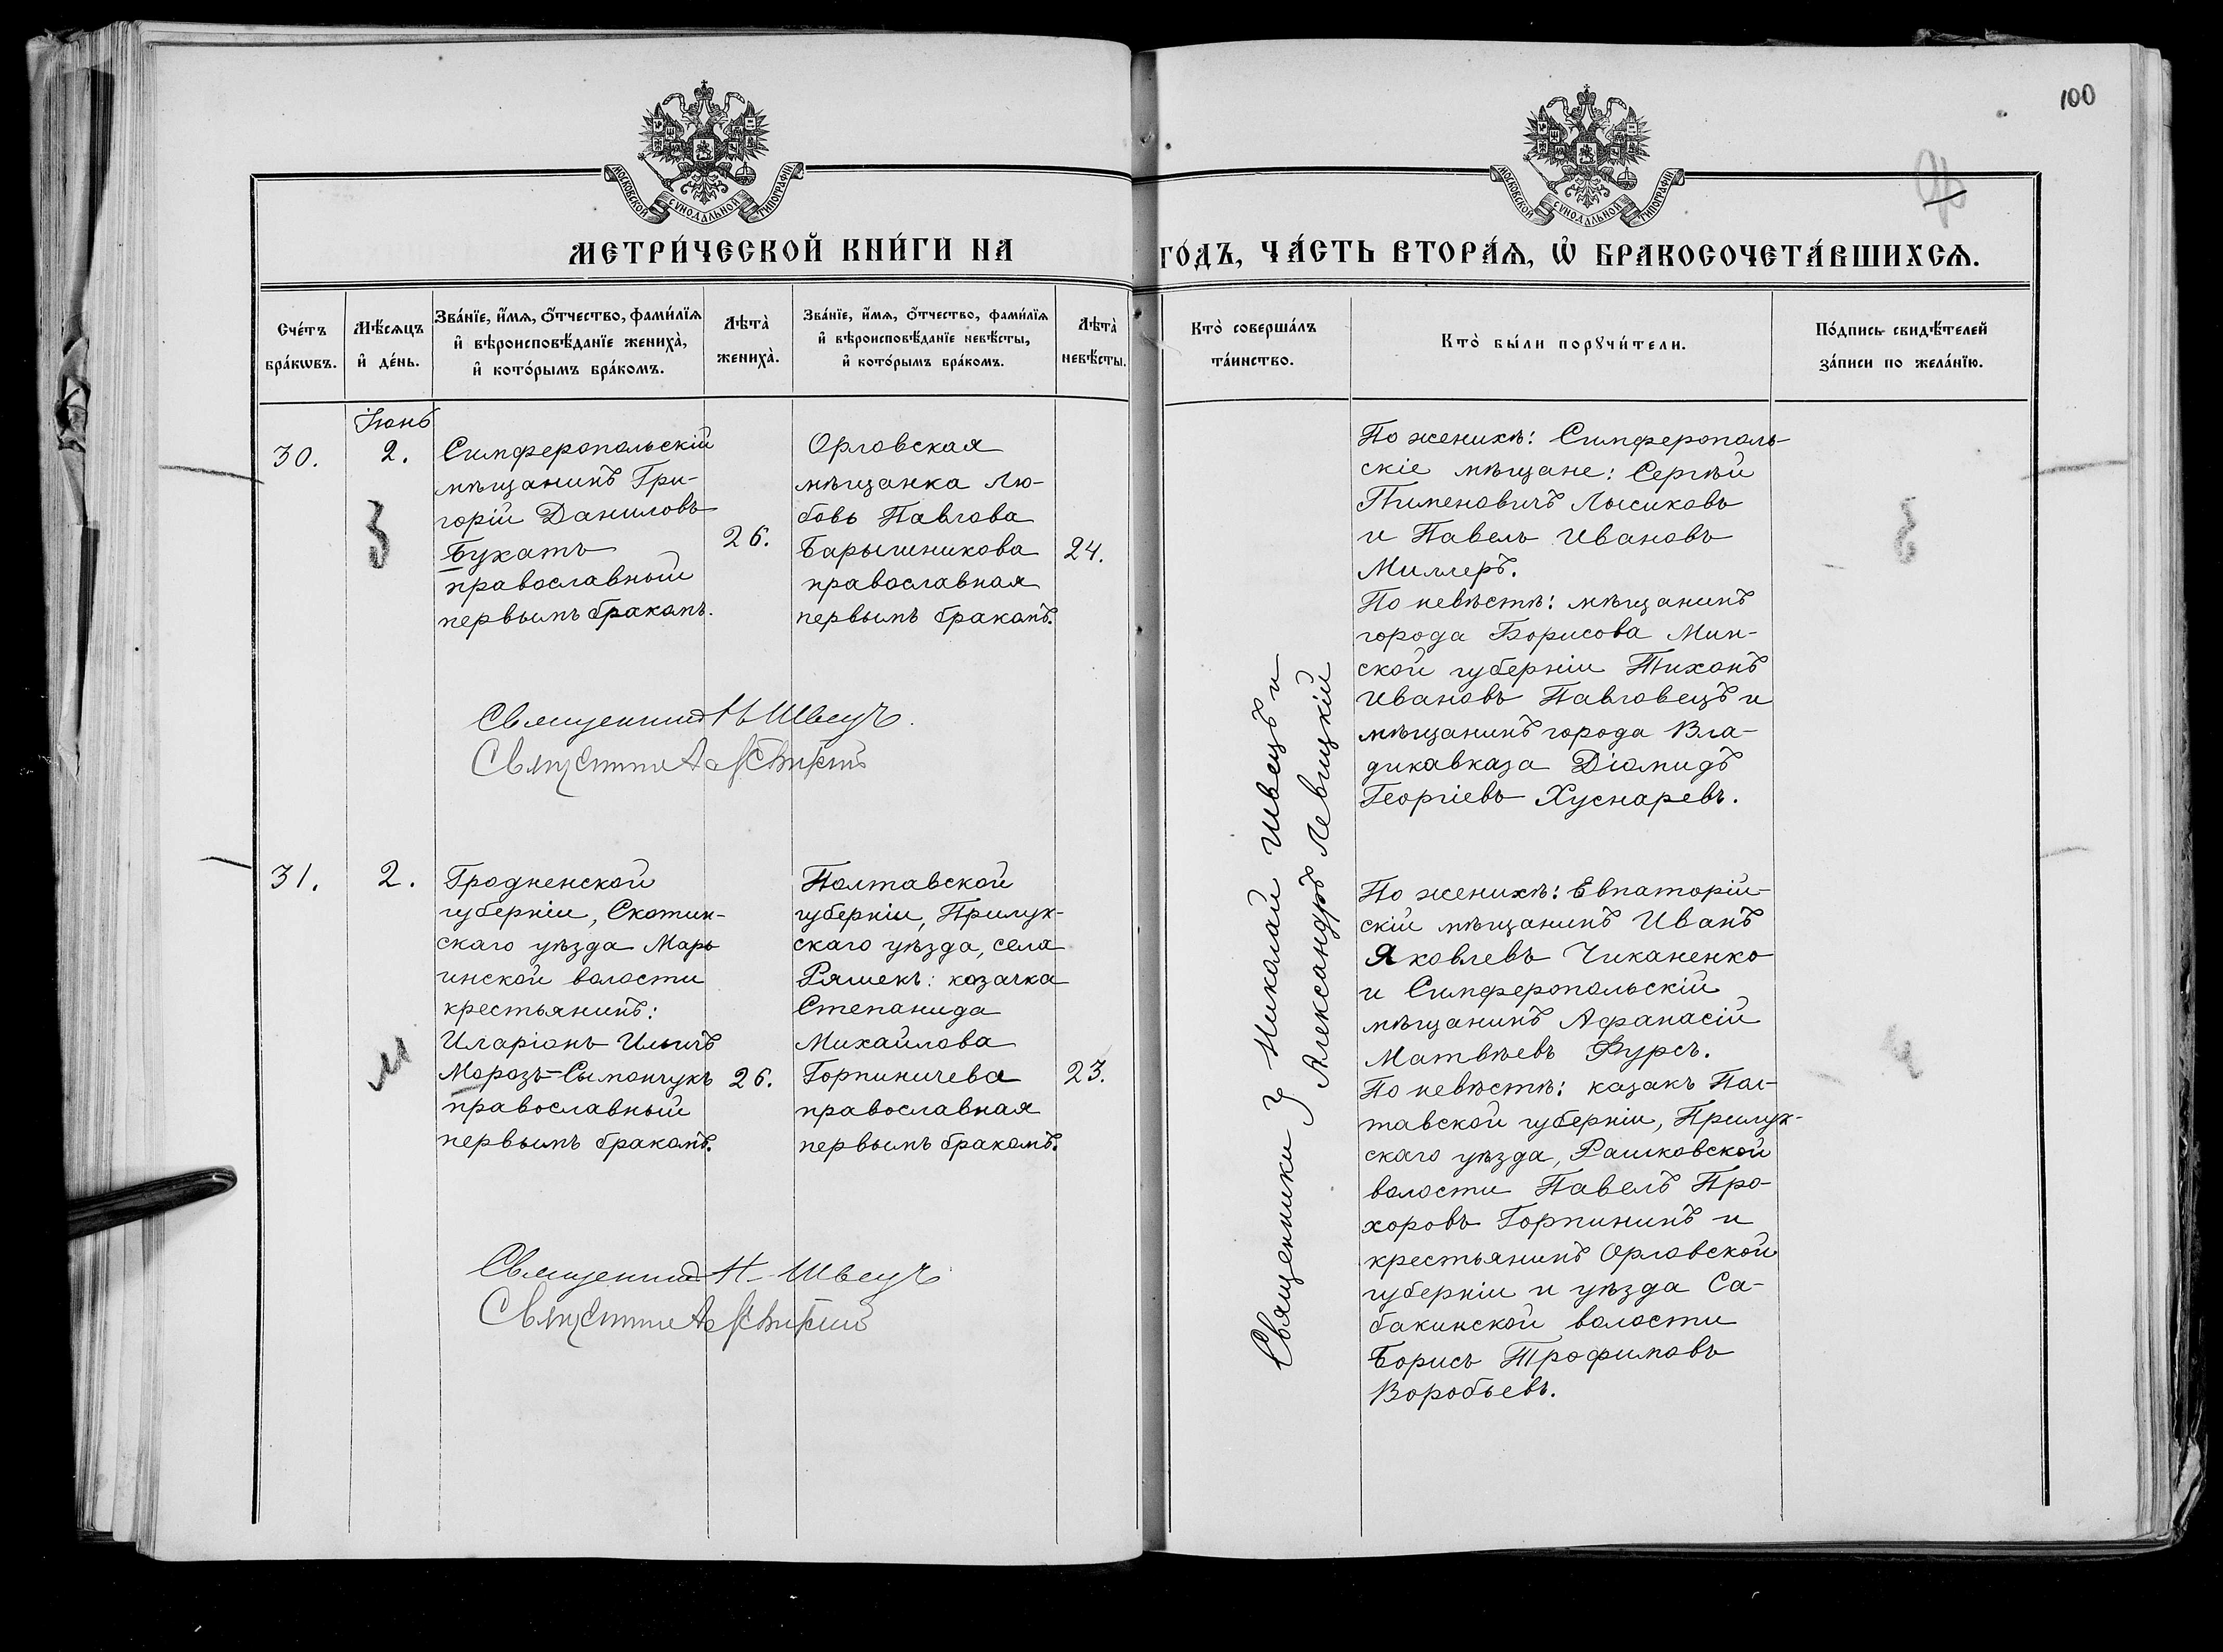 100
МОСКОВСКОЙ СѴНОДАЛЬНОЙ ТИПОГРАФІИ.
МОСКОВСКОЙ СѴНОДАЛЬНОЙ ТИПОГРАФІИ.
МЕТРИ́ЧЕСКОЙ КНИ́ГИ НА
ГО́ДЪ, ЧА́СТЬ ВТОРА́Ѧ, Ѽ БРАКОСОЧЕТА́ВШИХСѦ.
Сче́тъ
бра́кѡвъ.
Мѣ́сѧцъ
и҆ де́нь.
Зва́нїе, и҆́мѧ, ѻ҆́тчество, фами́лїѧ
и҆ вѣроисповѣ́данїе жениха̀,
и҆ кото́рымъ бра́комъ.
Лѣта̀
жениха̀.
Зва́нїе, и҆́мѧ, ѻ҆́тчество, фами́лїѧ
и҆ вѣроисповѣ́данїе невѣ́сты,
и҆ кото́рымъ бра́комъ.
Лѣта̀
невѣ́сты.
Кто̀ соверша́лъ
та́инство.
Кто̀ бы́ли порꙋчи́тели.
По́дпись свидѣ́телей
за́писи по жела́нїю.
30.
Іюнь
2.
Симферопольскій
мѣщанинъ Гри-
горій Даниловъ
Букатъ
православный
первымъ бракомъ.
26.
Орловская
мѣщанка Лю-
бовь Павлова
Барышникова
православная
первымъ бракомъ.
24.
Священникъ Н Швецъ.
Священникъ А Левицкій
По женихѣ: Симферополь-
скіе мѣщане: Сергѣй
Пименовичъ Лысиковъ
и Павелъ Ивановъ
Миллеръ.
По невѣстѣ: мѣщанинъ
города Борисова Мин-
ской губерніи Тихонъ
Ивановъ Павловецъ и
мѣщанинъ города Вла-
дикавказа Діомидъ
Георгіевъ Хуснаревъ.
31.
2.
Гродненской
губерніи, Скотин-
скаго уѣзда Марь
инской волости
крестьянинъ:
Иларіонъ Ильичъ
Морозъ-Сымончукъ
православный
первымъ бракомъ.
26.
Полтавской
губерніи, Прилук-
скаго уѣзда, села
Ряшекъ: козачка
Степанида
Михайлова
Горпиничева
православная
первымъ бракомъ.
23.
Священникъ Н. Швецъ
Священникъ А Левицкій
Священники Николай Швецъ и
Александръ Левицкій
По женихѣ: Евпаторій-
скій мѣщанинъ Иванъ
Яковлевъ Чиканенко
и Симферопольскій
мѣщанинъ Афанасій
Матвѣевъ Фурсъ.
По невѣстѣ: казакъ Пол-
тавской губерніи, Прилук-
скаго уѣзда, Рашковской
волости Павелъ Про-
хоровъ Горпининъ и
крестьянинъ Орловской
губерніи и уѣзда Са-
бакинской волости
Борисъ Трофимовъ
Воробьевъ.